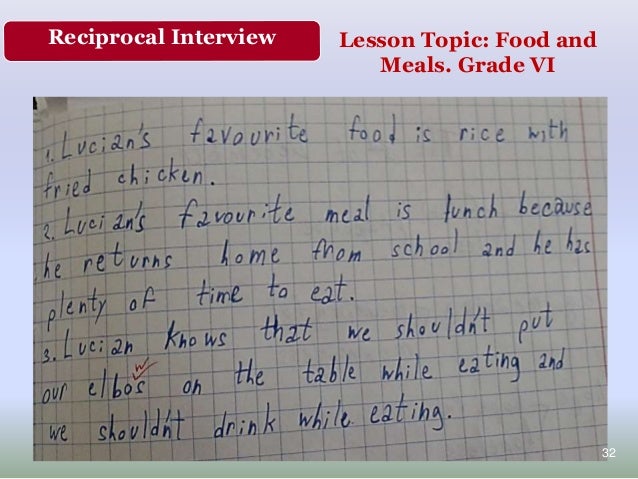 Reciprocal Interview
Lesson Topic: Food and
Meals. Grade VI
1. Lucian's favourite food is rice with
fried chicken.
2. Lucian's favourite meal is lunch because
he returns home from school and he has
plenty of time to eat.
3. Lucian knows that we shouldn't put
our elbos on the table while eating and
w
we shouldn't drink while eating.
32